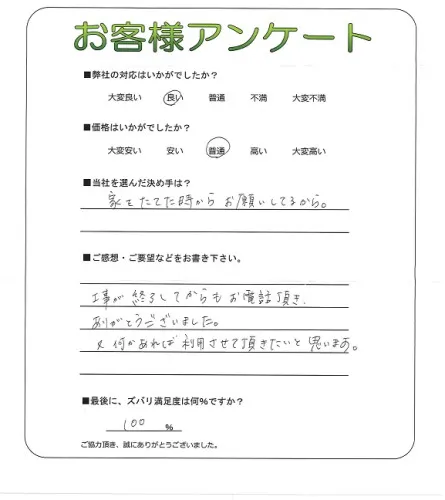 お客様アンケート
■弊社の対応はいかがでしたか?
大変良い 良い 普通 不満 大変不満
■価格はいかがでしたか?
大変安い 安い 普通 高い 大変高い
■当社を選んだ決め手は?
家をたてた時からお願いしてるから。
■ご感想・ご要望などをお書き下さい。
工事が終了してからもお電話頂き、
ありがとうございました。
又何かあれば利用させて頂きたいと思います。
■最後に、ズバリ満足度は何%ですか?
100 %
ご協力頂き、誠にありがとうございました。